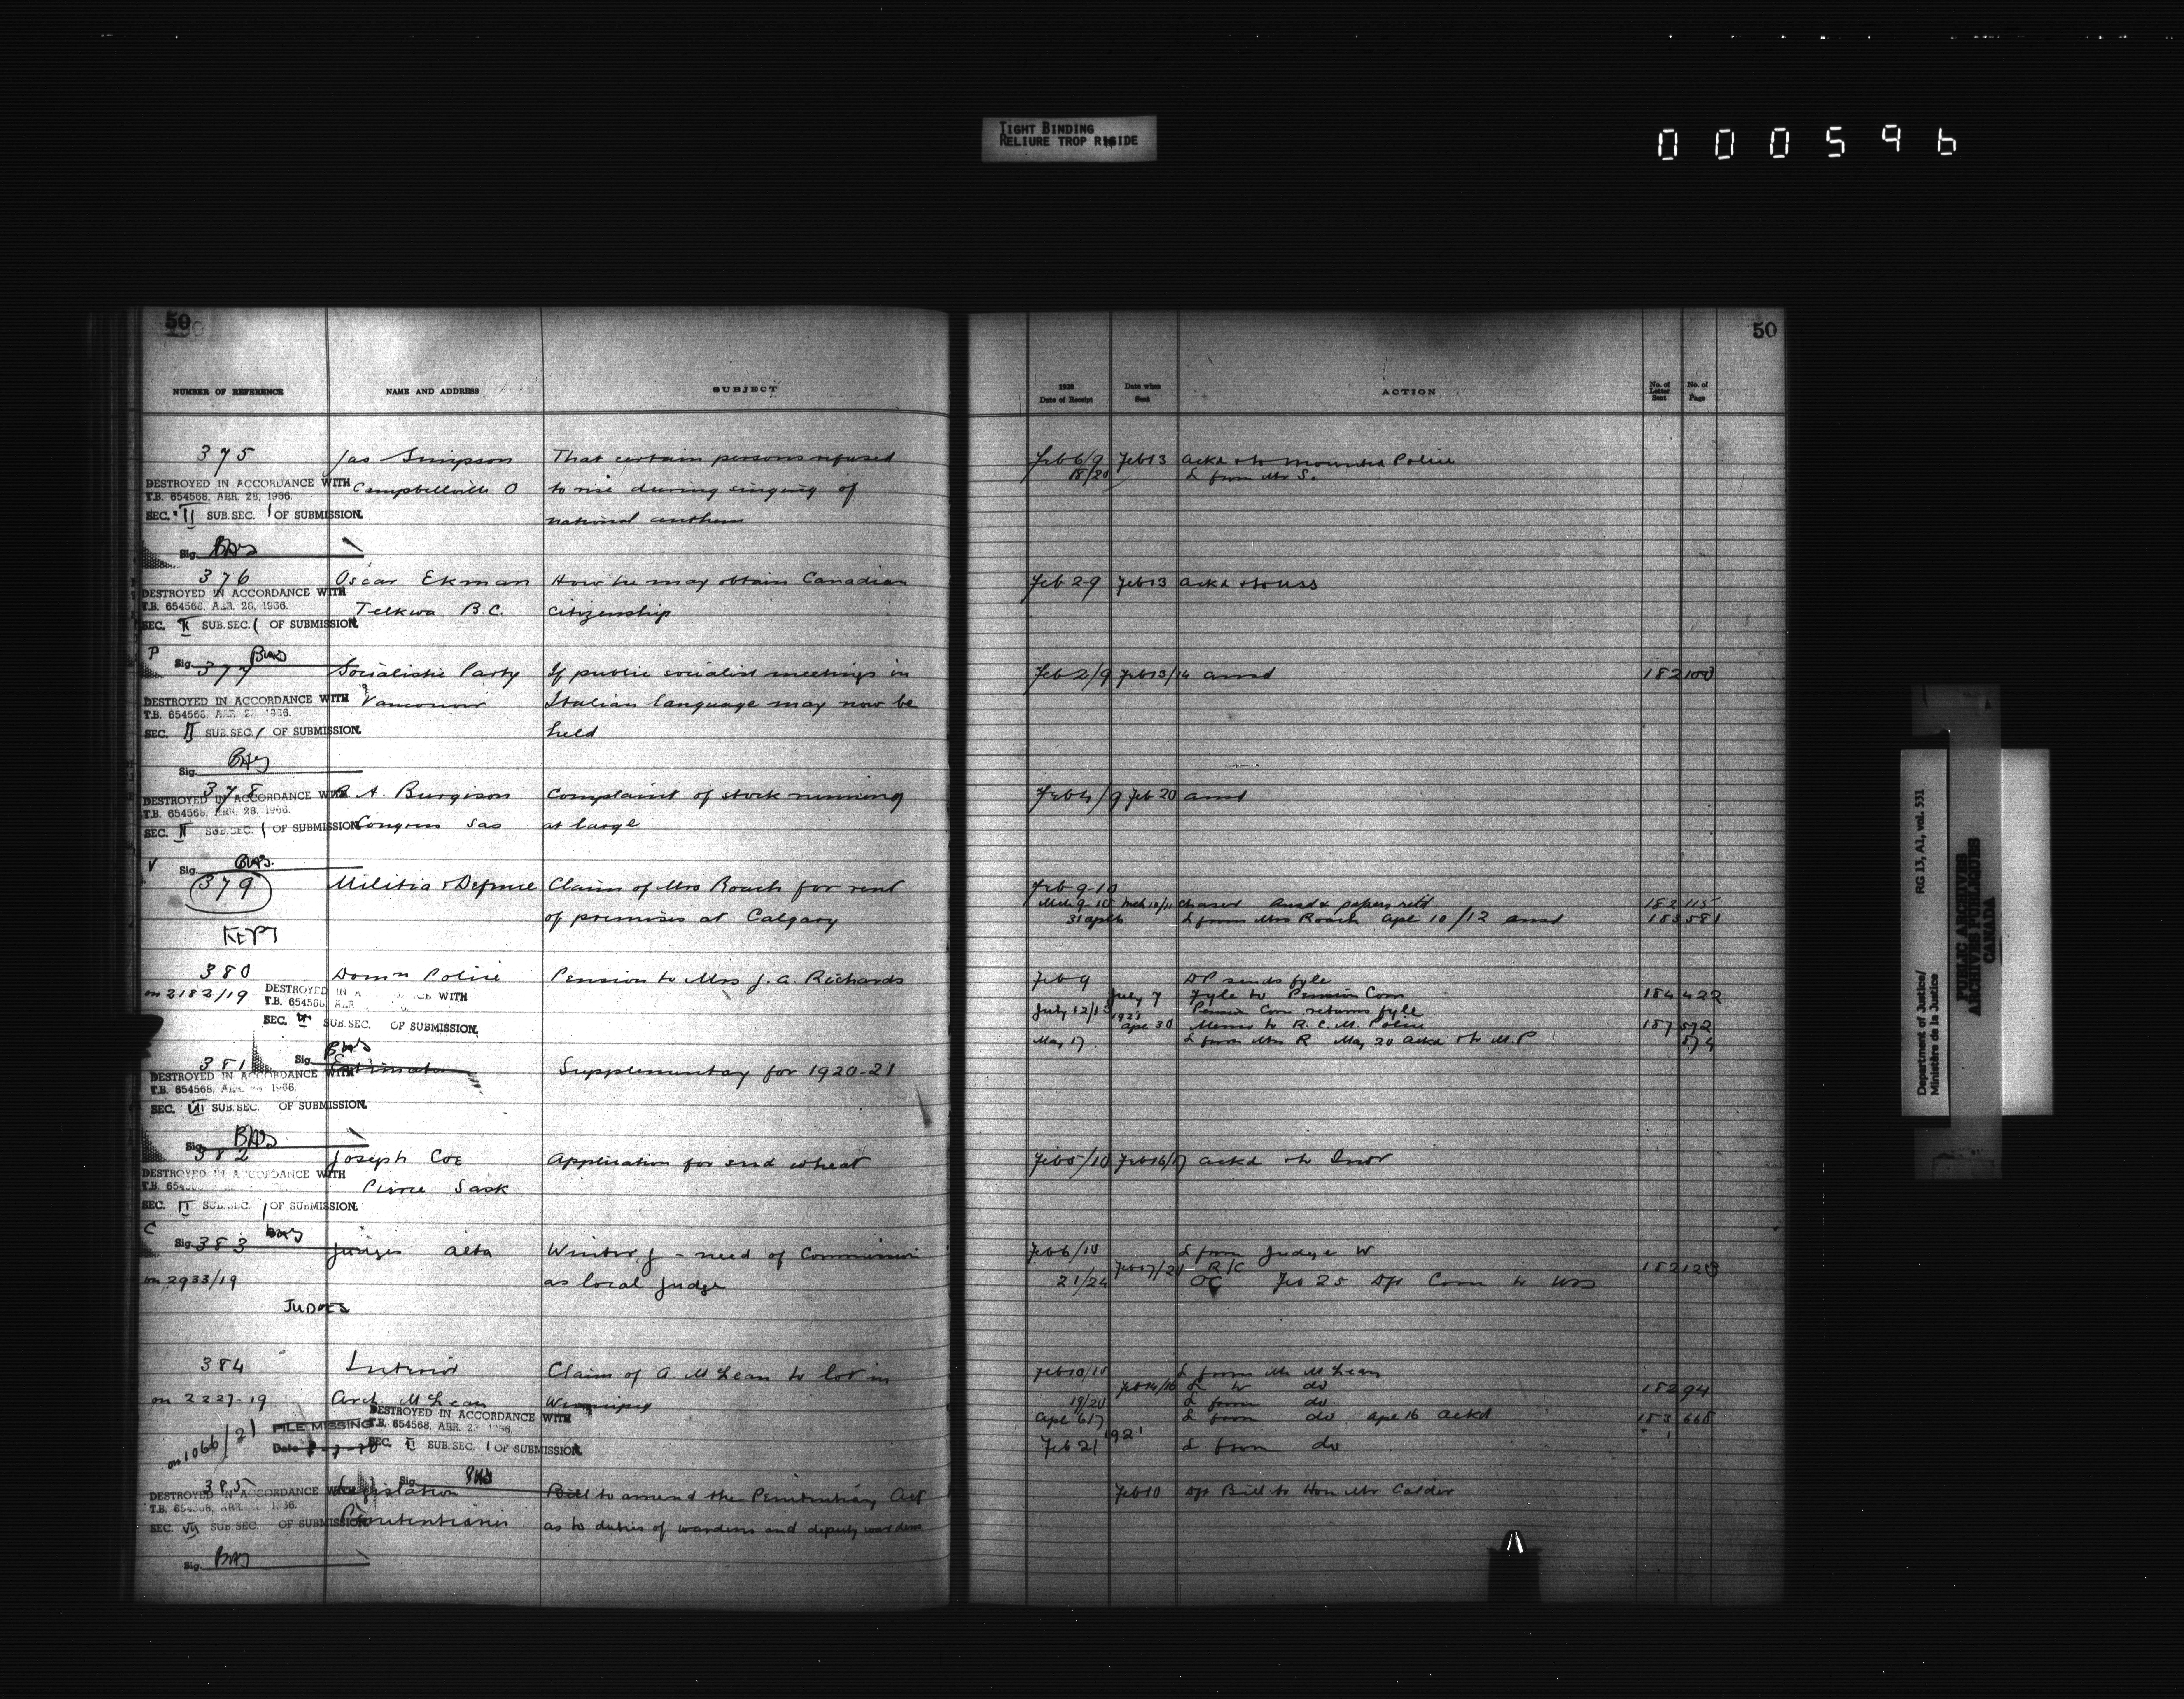 TIGHT BINDING
RELIURE TROP RIGIDE
000596
50
50
NUMBER OF REFERENCE NAME AND ADDRESS SUBJECT
1920 Date of Receipt Date when Sent ACTION No. of Letter Sent No. of Page
375 Jas Simpson That certain persons refused Feb 6/9 Feb 13 ackd & to Mounted Police
18/20 L from Mr S.
DESTROYED IN ACCORDANCE WITH
T.B. 654568, ABR. 28, 1966.
SEC. II SUB.SEC. 1 OF SUBMISSION.
Campbellville O to rise during singing of
national anthem
Sig.
376 Oscar Ekman How he may obtain Canadian Feb 2-9 Feb 13 ackd & to USS
DESTROYED IN ACCORDANCE WITH
T.B. 654568, ABR. 28, 1966.
Telkwa B.C. citizenship
SEC. II SUB.SEC. 1 OF SUBMISSION.
P
Sig.
377 Socialistic Party If public socialist meetings in Feb 2/9 Feb 13/14 ansd 182 100
DESTROYED IN ACCORDANCE WITH
T.B. 654568, 1966.
Vancouver Italian language may now be
SEC. II SUB.SEC. 1 OF SUBMISSION.
held
Sig.
378 A. Burgison Complaint of stock running Feb 4/9 Feb 20 ansd
DESTROYED IN ACCORDANCE WITH
T.B. 654568, ABR. 28, 1966.
Congress Sas at large
SEC. II SUB.SEC. 1 OF SUBMISSION.
V
Sig.
379 Militia & Defence Claim of Mrs Roach for rent Feb 9-10
of premises at Calgary
Mch 9-10 Mch 10/11 ansd & papers retd 182 115
31 Apl 6 L from Mrs Roach Apl 10/12 ansd 183 581
KEPT
380 Domn Police Pension to Mrs J. A. Richards Feb 9 DP sends fyle
on 2182/19
DESTROYED WITH
T.B. 654568
SEC. SUB.SEC. OF SUBMISSION.
July 7 Fyle to Pension Com 184 422
July 12/13 Pension Com returns fyle
1921
Apl 30 Memo to R. C. M. Police 187 572
May 17 L from Mrs R May 20 ackd & to M.P 574
Sig.
381 Estimates Supplementary for 1920-21
DESTROYED IN ACCORDANCE WITH
T.B. 654568, 1966.
SEC. VII SUB.SEC. OF SUBMISSION.
Sig.
382 Joseph Coe Application for seed wheat Feb 5/10 Feb 16/17 ackd & to Intr
DESTROYED IN ACCORDANCE WITH
Sask
SEC. II SUB.SEC. 1 OF SUBMISSION.
C
Sig.
383 Judges Alta Winter, J - need of Commission Feb 6/10 L from Judge W
on 2933/19 as local judge
Feb 17/21 R/C 182 128
21/24 OC Feb 25 Dft Com to
JUDGES
384 Interior Claim of A. McLean to lot in Feb 10/10 L from Mr McLean
on 2227-19 Arch McLean Winnipeg
Feb 14/16 L to do 182 94
19/20 L from do
Apl 6 17 L from do Apl 16 ackd 183 668
1921
Feb 21 L from do
on 1066/21
FILE MISSING
Date
DESTROYED IN ACCORDANCE WITH
T.B. 654568, ABR. 1966.
SEC. II SUB.SEC. 1 OF SUBMISSION.
Sig.
385 Legislation Bill to amend the Penitentiary Act Feb 10 Dft Bill to Hon Mr Calder
DESTROYED IN ACCORDANCE WITH
T.B. 654568, 1966.
Penitentiaries as to duties of wardens and deputy wardens
SEC. VII SUB.SEC. OF SUBMISSION.
Sig.
Department of Justice/ RG 13, A1, vol. 531
Ministère de la Justice
PUBLIC ARCHIVES
ARCHIVES PUBLIQUES
CANADA